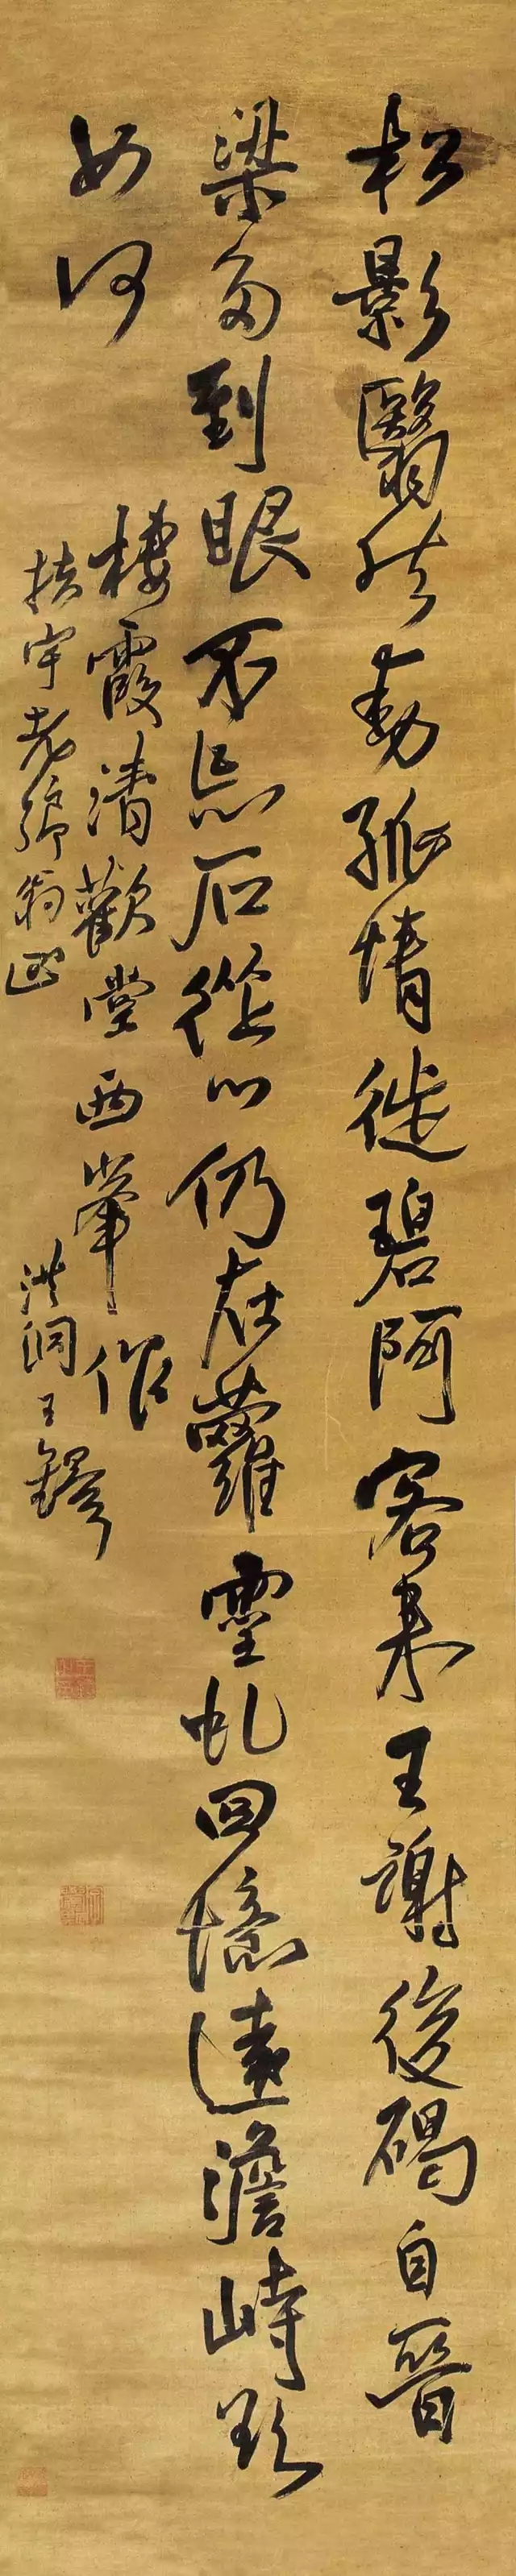 松影翳然動孤情徙碧阿客來王謝後碣自晉
梁多到眼不忘石從心仍在蘿靈虬回憶遠澹峙
如何
棲霞清歡堂西峯作
宇老鄉翁正 洪洞王鐸